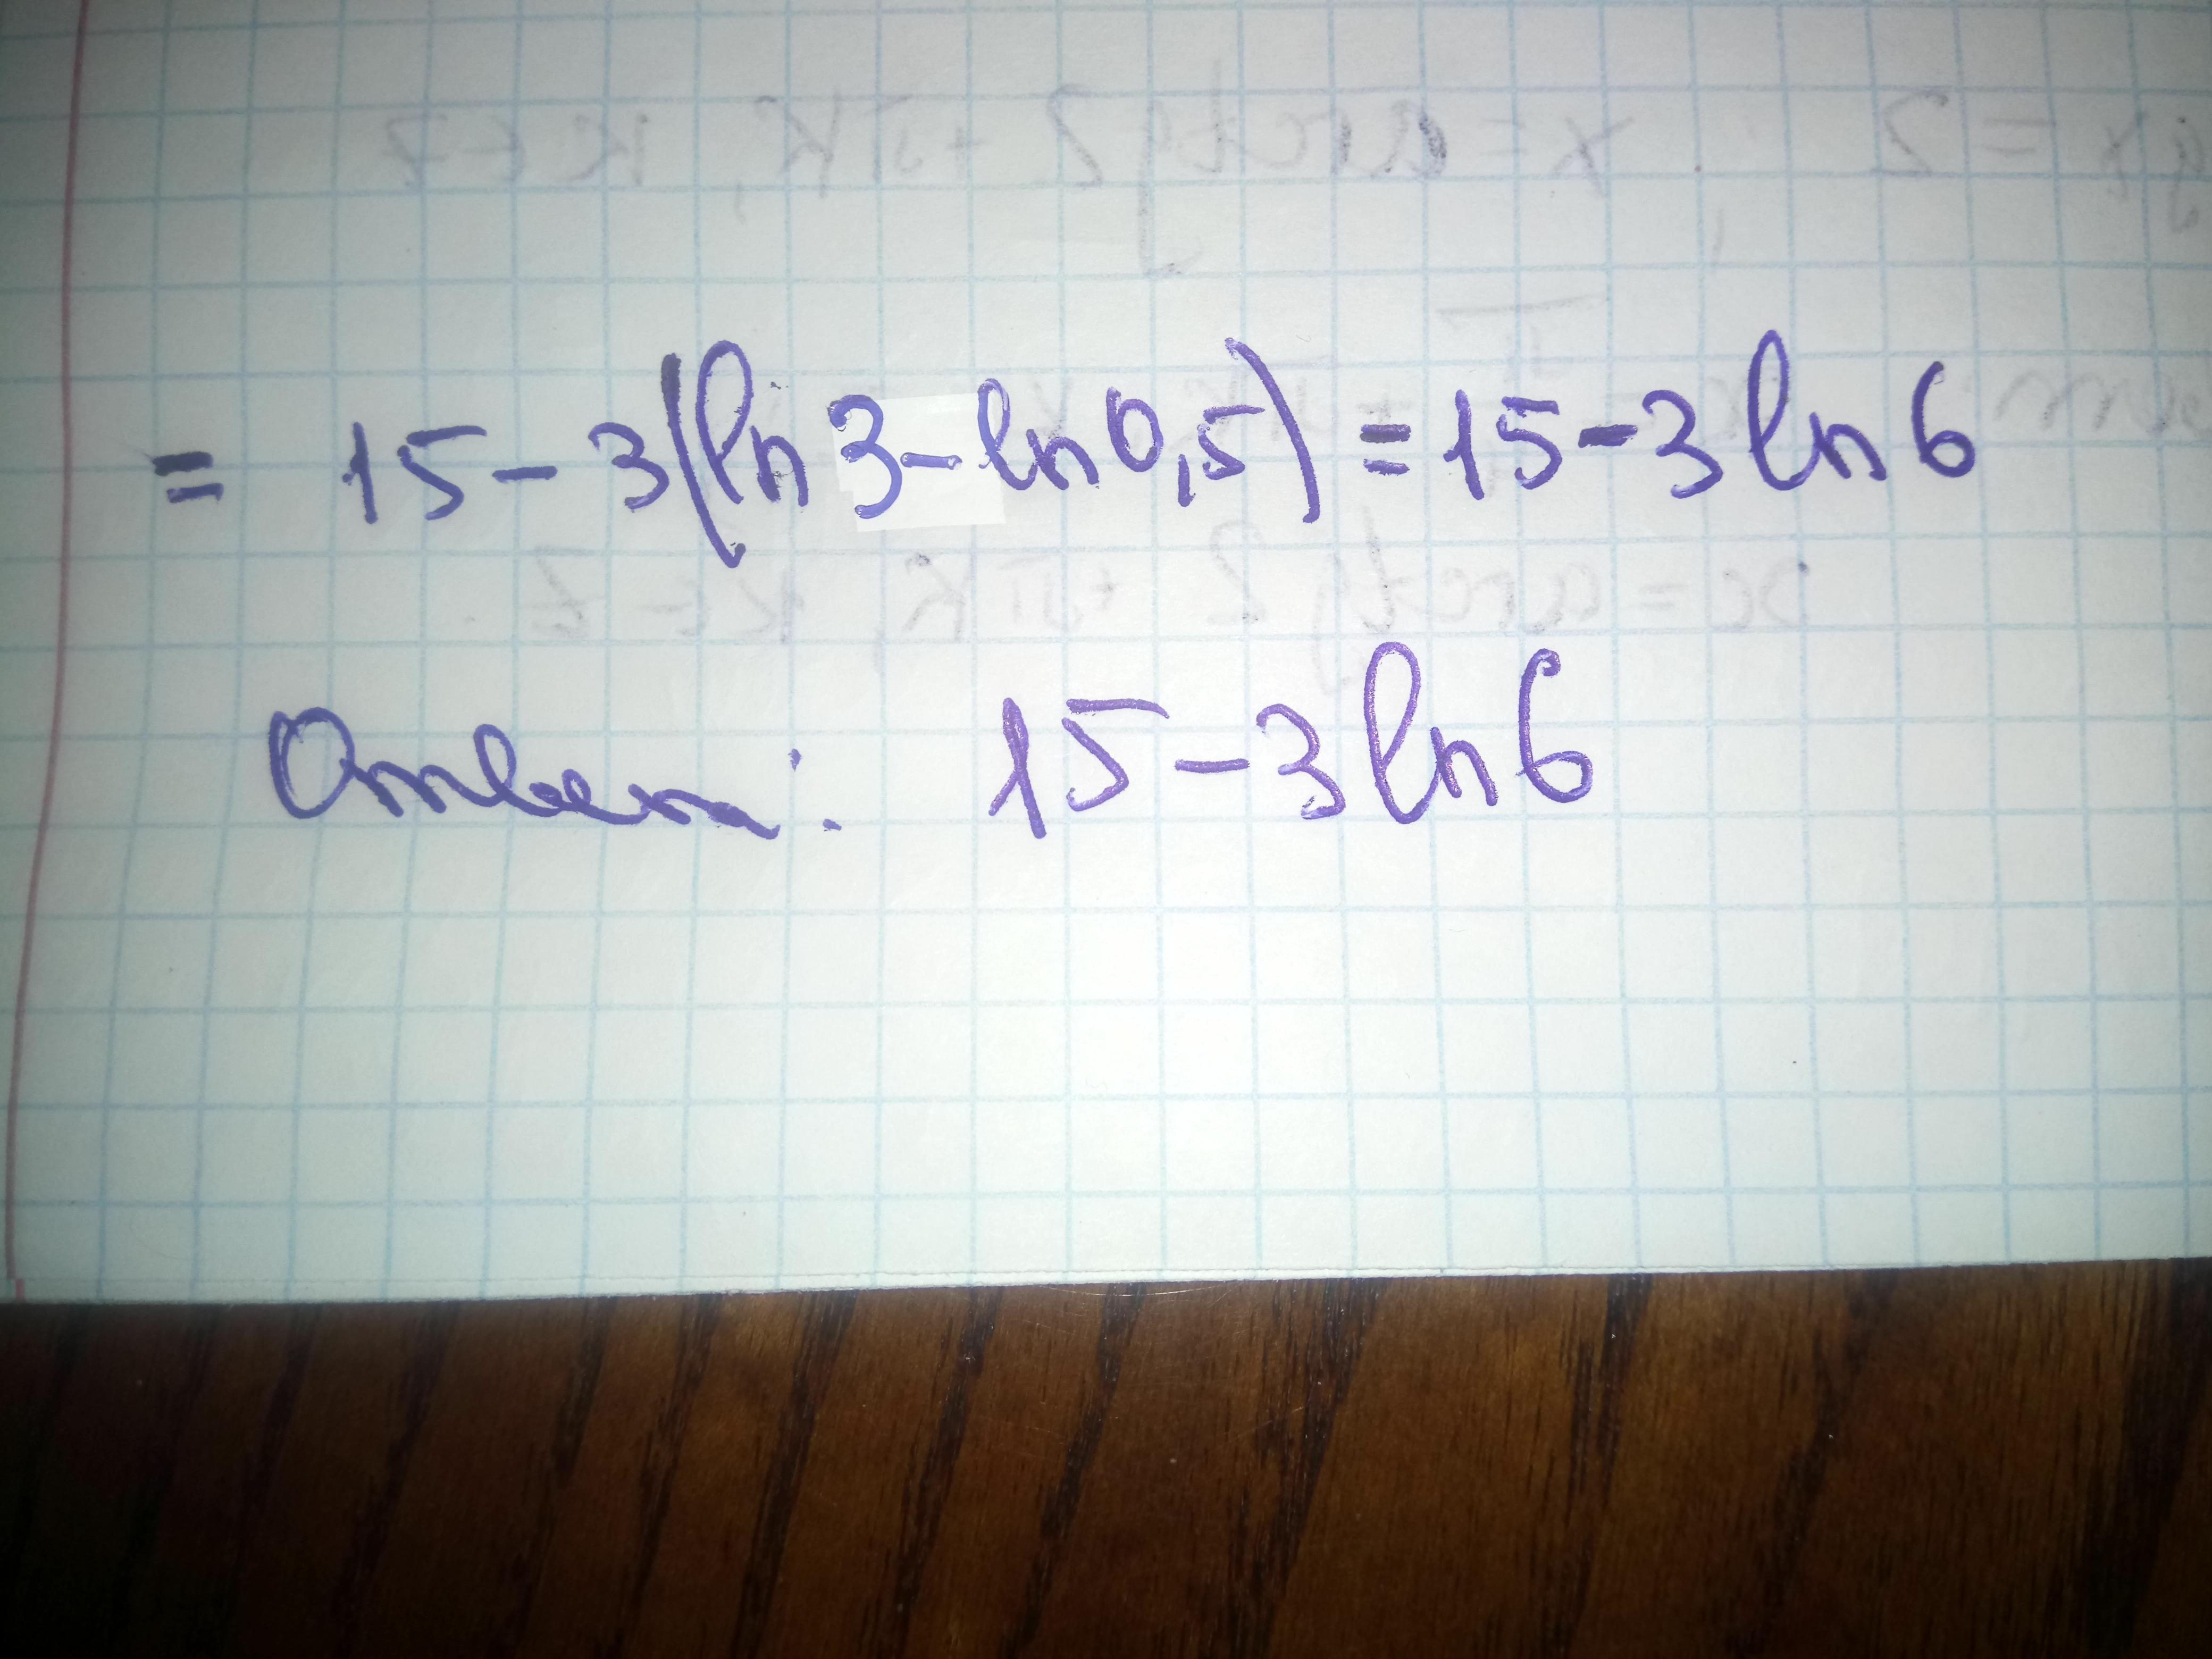 = 15 - 3(ln 3 - ln 0,5) = 15 - 3 ln 6
Ответ: 15 - 3 ln 6